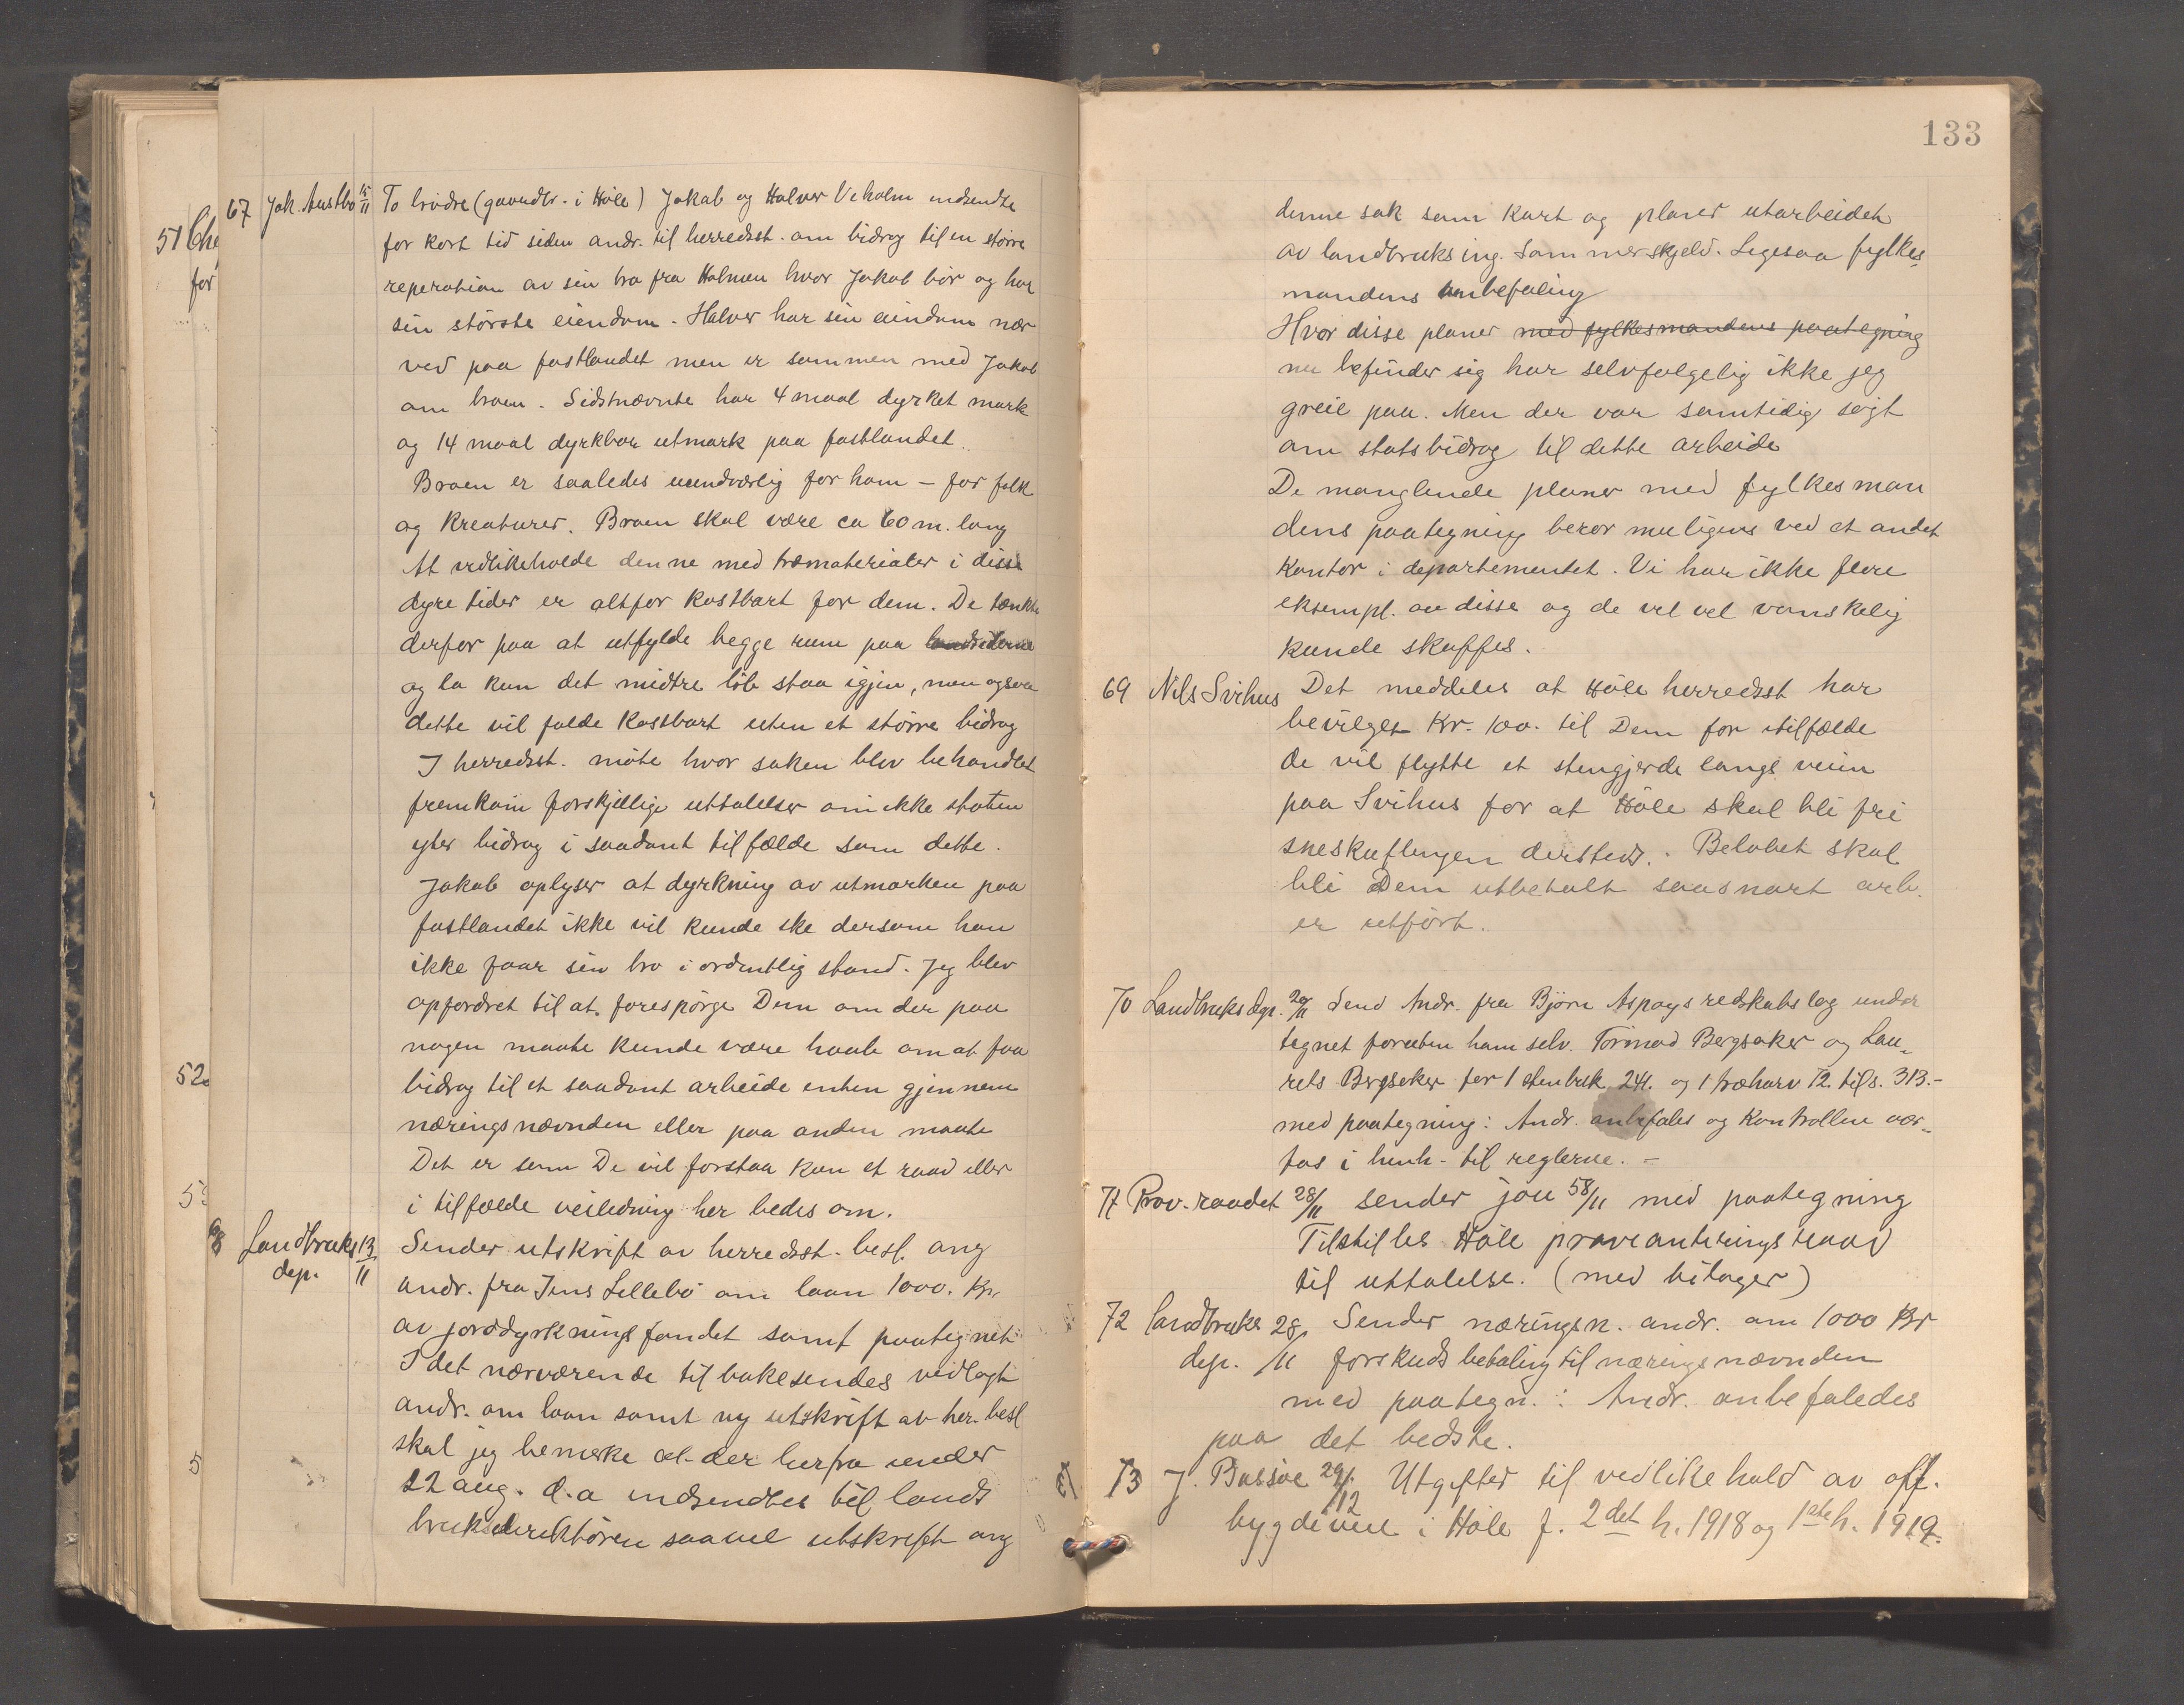 51 Che
for
52
5
5
67 Jak. Austbö 15/11 To brödre (gaardbr. i Höle) Jakob og Halvor Veholm indsendte
for kort tid siden andr. til herredsst. om bidrag til en större
reperation av sin bro fra Holmen hvor Jakob bor og har
sin störste eiendom. Halvor har sin eiendom nær
ved paa fastlandet men er sammen med Jakob
om broen. Sidstnævnte har 4 maal dyrket mark
og 14 maal dyrkbar utmark paa fastlandet.
Broen er saaledes uundværlig for ham – for folk
og kreaturer. Broen skal være ca 60 m. lang
At vedlikeholde denne med træmaterialer i disse
dyre tider er altfor kostbart for dem. De tænkte
derfor paa at utfylde begge rum paa landsiderne
og la kun det midtre löb staa igjen, men ogsaa
dette vil falde kostbart uten et större bidrag
I herredsst. möte hvor saken blev behandlet
fremkom forskjellige uttalelser om ikke staten
yter bidrag i saadant tilfælde som dette.
Jakob oplyser at dyrkning av utmarken paa
fastlandet ikke vil kunde ske dersom han
ikke faar sin bro i ordentlig stand. Jeg blev
opfordret til at forespörge Dem om der paa
nogen maate kunde være haab om at faa
bidrag til et saadant arbeide enten gjennem
næringsnævnden eller paa anden maate
Det er som De vil forstaa kun et raad eller
i tilfælde veiledning her bedes om.
68 Landbruks 13/11 Sender utskrift av herredsst. besl. ang
dep. andr. fra Jens Lillebö om laan 1000. Kr.
av jorddyrkningsfondet samt paategnet
I det nærværende tilbakesendes vedlagt
andr. om laan samt ny utskrift av her. besl
skal jeg bemerke at der herfra under
22 aug. d.a indsendtes til lands
bruksdirektören saavel utskrift ang
133
denne sak som kart og planer utarbeidet
av landbruksing. Sommerskjeld. Ligesaa fylkes
mandens anbefaling
Hvor disse planer med fylkesmandens paategning
nu befinder sig har selvfølgelig ikke jeg
greie paa. Men der var samtidig søgt
om statsbidrag til dette arbeide
De manglende planer med fylkesman
dens paategning beror muligens ved et andet
kontor i departementet. Vi har ikke flere
eksempl. av disse og de vil vel vanskelig
kunde skaffes.
69 Nils Svihus Det meddeles at Höle herredsst har
bevilget Kr. 100. til Dem for itilfælde
De vil flytte et stengjerde langs veien
paa Svihus for at Höle skal bli fri
sneskuflingen dersteds. Belöbet skal
bli Dem utbetalt saasnart arb.
er utfört.
70 Landbruksdep. 20/11 Send Andr. fra Björn Aspøys redskabslag under
tegnet foruten ham selv. Tormod Bergsaker og Lau-
rits Bergsaker for 1 stenbuk 241. og 1 træharv 72. tils. 313.-
med paategning: Andr. anbefales og kontrollen over-
tas i henh. til reglerne. –
71 Prov. raadet 28/11 sender jou 58/11 med paategning
Tilstilles Höle provianteringsraad
til uttalelse. (med bilager)
72 Landbruks 28/11 Sender næringsn. andr. om 1000 Kr
dep. forskudsbetaling til næringsnævnden
med paategn.: Andr. anbefaledes
paa det bedste.
73 J. Bussöe 29/12 Utgifter til vedlikehold av off.
bygdeveie i Höle f. 2det h. 1918 og 1ste h. 1919.